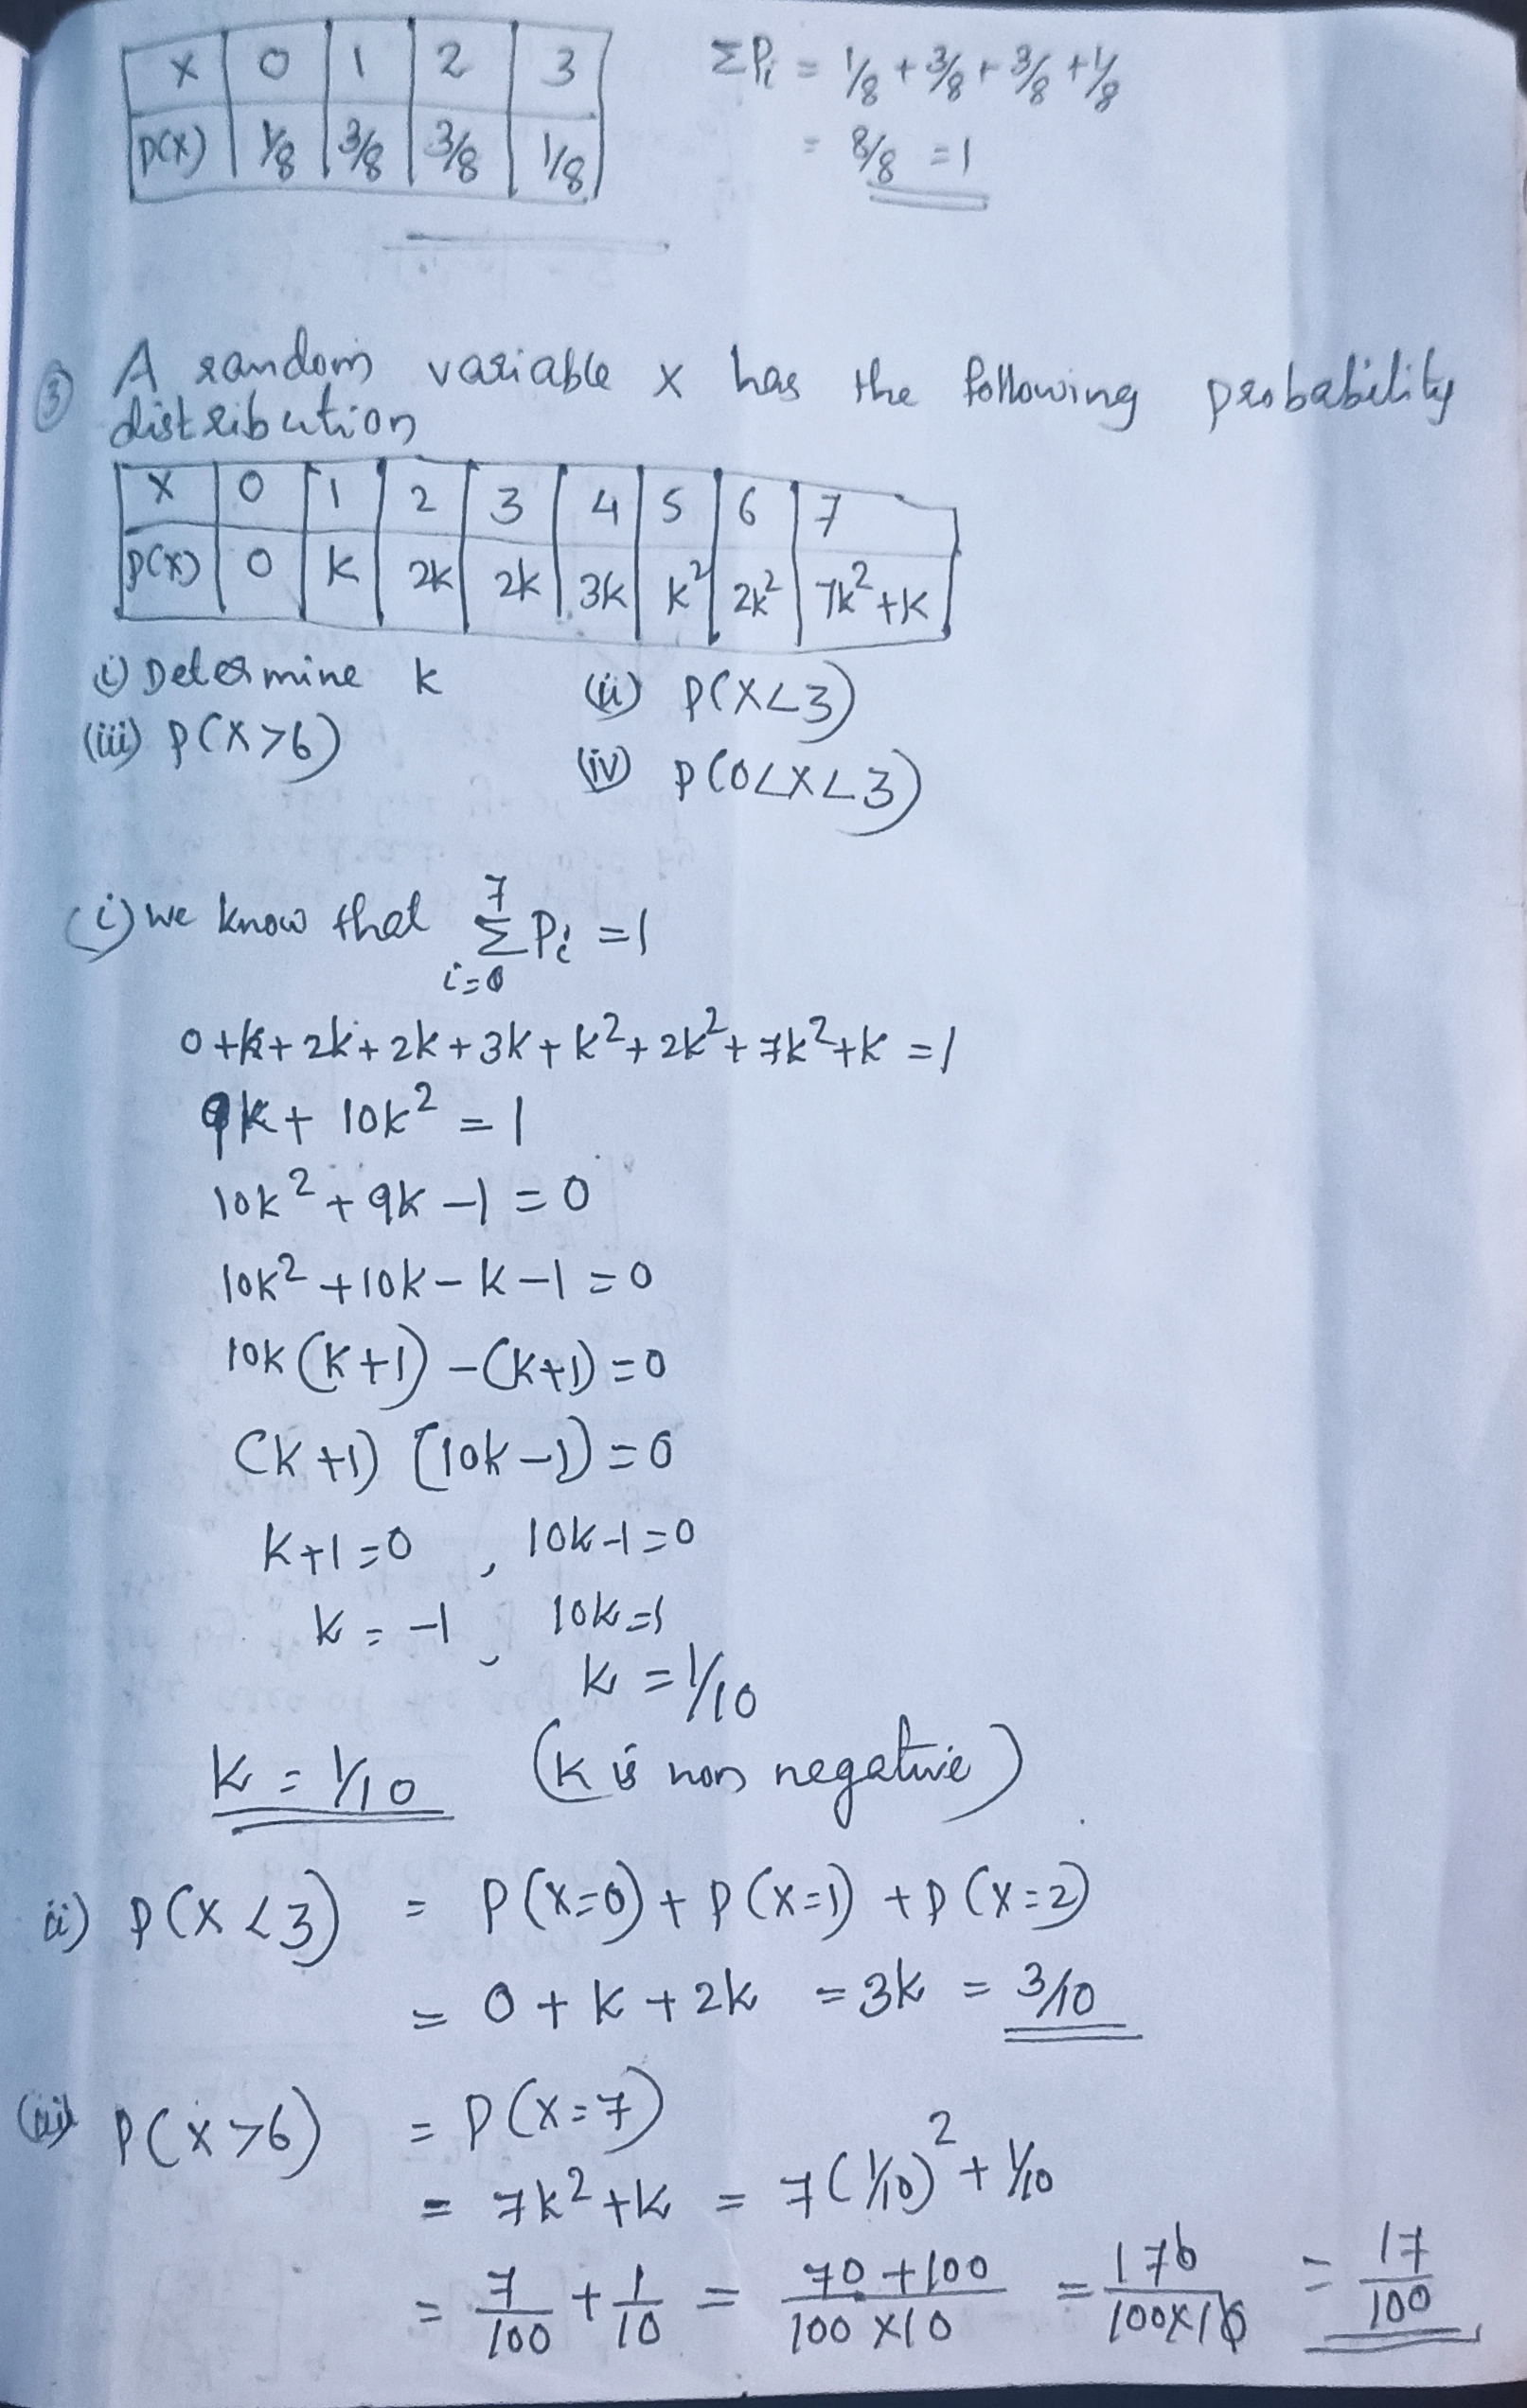 X 0 1 2 3 ΣPi = 1/8 + 3/8 + 3/8 + 1/8
P(X) 1/8 3/8 3/8 1/8 = 8/8 = 1
③ A random variable X has the following probability
distribution
X 0 1 2 3 4 5 6 7
P(X) 0 K 2K 2K 3K K² 2K² 7K²+K
(i) Determine K (ii) P(X<3)
(iii) P(X>6) (iv) P(0<X<3)
(i) we know that 7 Σ i=0 Pi = 1
0+K+2K+2K+3K+K²+2K²+7K²+K = 1
9K+ 10K² = 1
10K² + 9K - 1 = 0
10K² + 10K - K - 1 = 0
10K (K+1) - (K+1) = 0
(K+1) (10K-1) = 0
K+1=0 , 10K-1=0
K = -1 , 10K=1
K = 1/10
K = 1/10 (K is non negative)
ii) P(X<3) = P(X=0) + P(X=1) + P(X=2)
= 0 + K + 2K = 3K = 3/10
(iii) P(X>6) = P(X=7)
= 7K²+K = 7(1/10)² + 1/10
= 7/100 + 1/10 = 70+100/100×10 = 170/100×10 = 17/100